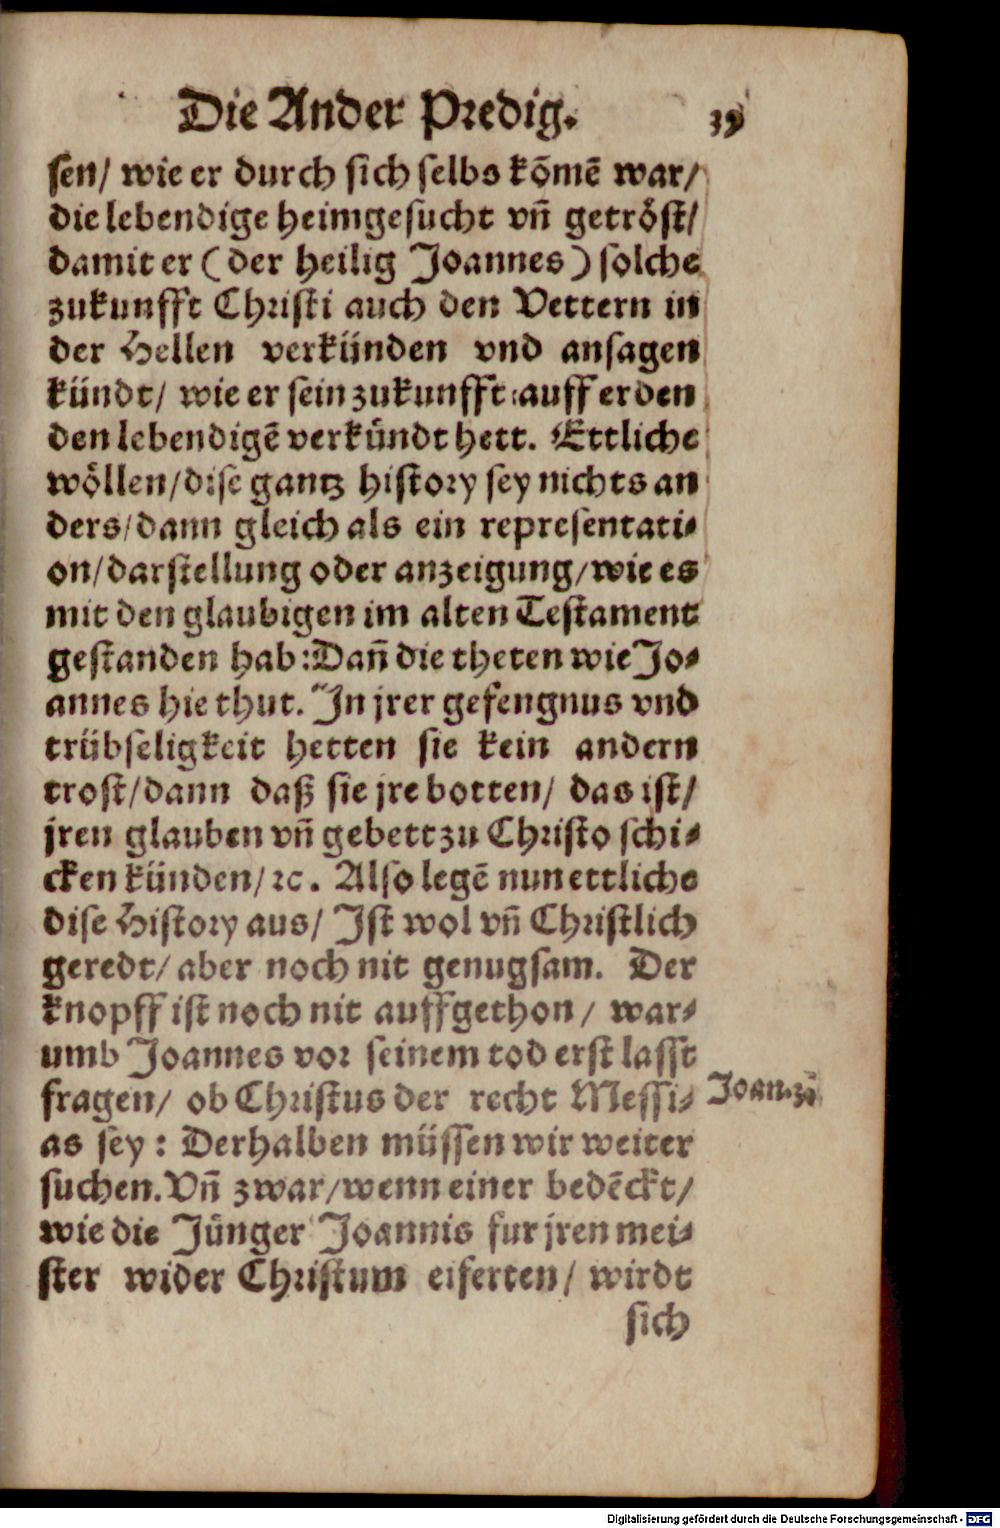 Die Ander Predig. 39
sen/ wie er durch sich selbs kõmẽ war/
die lebendige heimgesucht vñ getröst/
damit er (der heilig Joannes) solche
zukunfft Christi auch den Vettern in
der Hellen verkünden vnd ansagen
kündt/ wie er sein zukunfft auff erden
den lebendigẽ verkündt hett. Ettliche
wöllen/dise gantz history sey nichts an
ders/dann gleich als ein representati⸗
on/darstellung oder anzeigung/wie es
mit den glaubigen im alten Testament
gestanden hab:Dañ die theten wie Jo⸗
annes hie thut. In jrer gefengnus vnd
trübseligkeit hetten sie kein andern
trost/dann daß sie jre botten/ das ist/
jren glauben vñ gebett zu Christo schi⸗
cken künden/ꝛc. Also legẽ nun ettliche
dise History aus/ Ist wol vñ Christlich
geredt/aber noch nit genugsam. Der
knopff ist noch nit auffgethon/ war⸗
umb Joannes vor seinem tod erst lasst
fragen/ ob Christus der recht Messi⸗
Joan.
as sey: Derhalben müssen wir weiter
suchen.Vñ zwar/wenn einer bedẽckt/
wie die Jünger Joannis fur jren mei⸗
ster wider Christum eiferten/ wirdt
sich
Digitalisierung gefördert durch die Deutsche Forschungsgemeinschaft - DFG